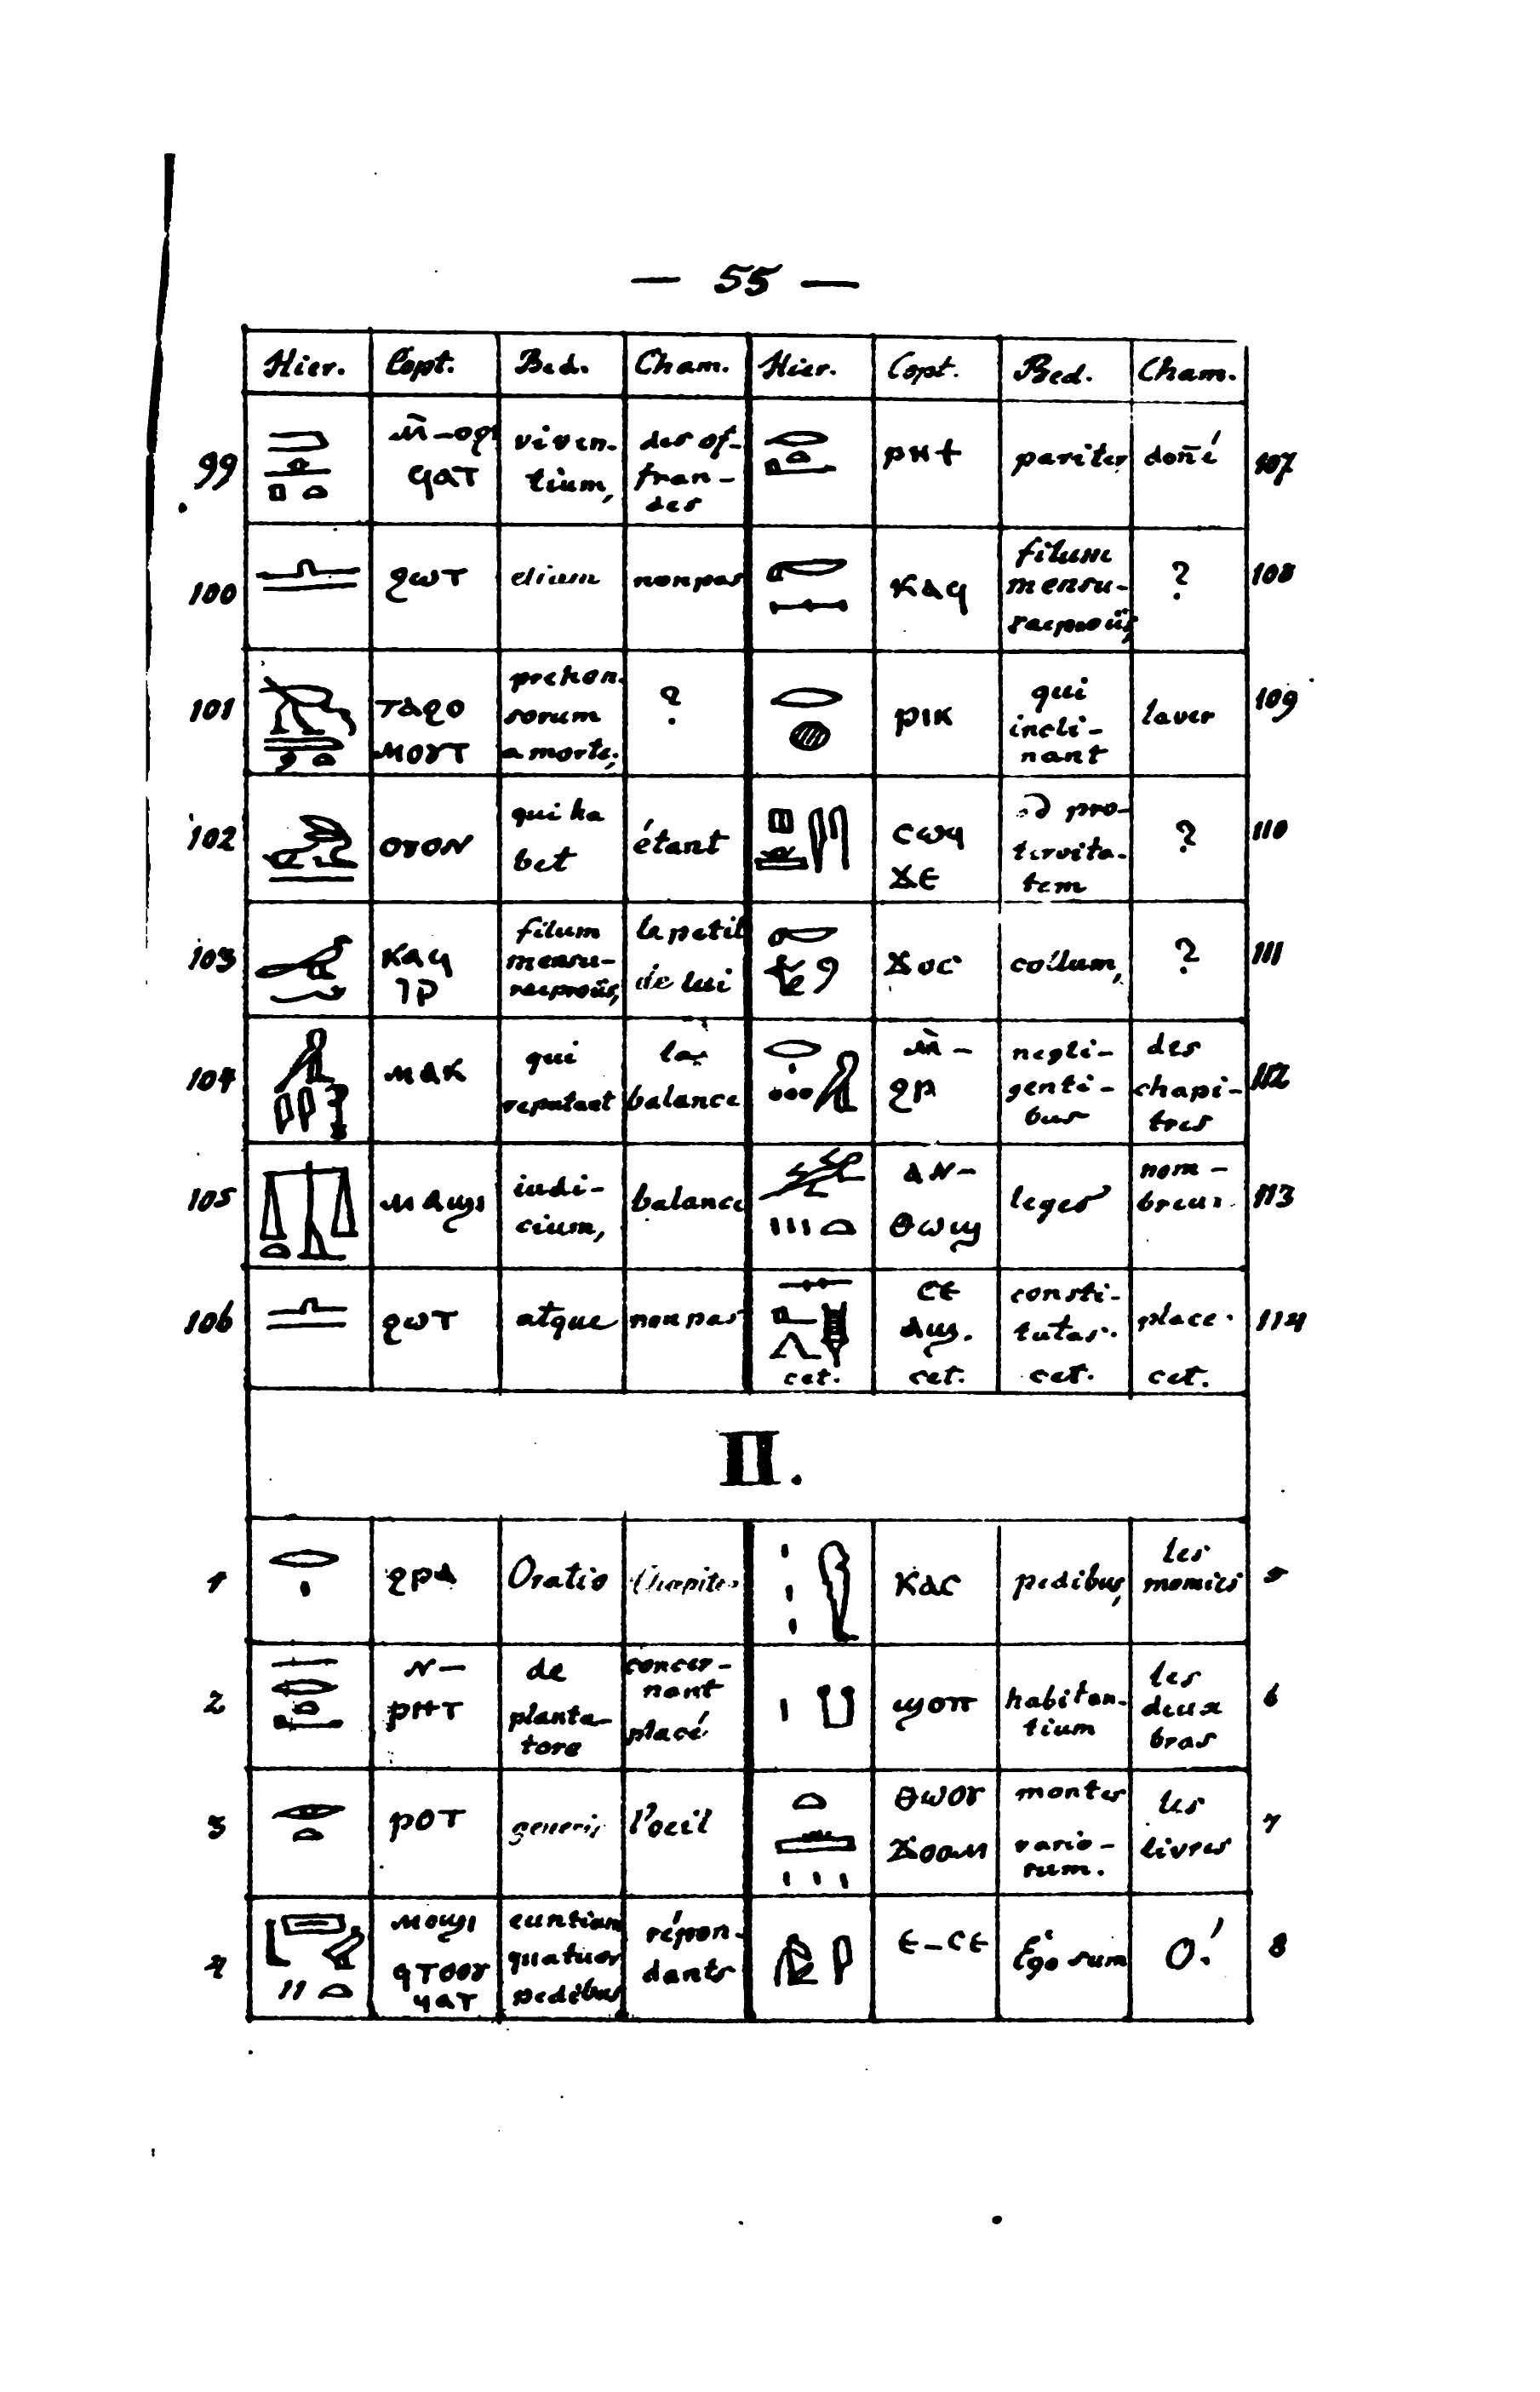 — 55 —
Hier. Copt. Bed. Cham. Hier. Copt. Bed. Cham.
99 viven- tium, des of- fran- des ⲣⲏϯ pariter doñé 107
ϥⲁⲧ
100 ϩⲱⲧ etiam non pas ⲕⲁϥ filum mensu- ? 108
101 ⲧⲁϩⲟ ⲙⲟⲩⲧ prehen- sorum a morte; ? ⲣⲓⲕ qui incli- nant laver 109
102 ⲟⲩⲟⲛ qui ha bet étant ⲥⲱϥ ϫⲉ pro- tervita- tem ? 110
103 ⲕⲁϥ ⲓⲣ filum mensu- le petit de lui ϫⲟⲥ collum, ? 111
104 ⲙⲁⲕ qui reputant la balance ⲛ̄- ϩⲣ negli- genti- bus des chapi- tres 112
105 ⲙⲁϣⲓ iudi- cium, balance ⲁⲛ- ⲑⲱϣ leges nom- breux 113
106 ϩⲱⲧ atque non pas cet. ⲥⲉ ⲁϣ. cet. consti- tutas. cet. place. cet. 114
II.
1 ϩⲣⲁ Oratio Chapitre ⲕⲁⲥ pedibus, les momies 5
2 ⲛ- ⲣⲏⲧ de planta- tore concer- nant placé ϣⲟⲡ habitan- tium les deux bras 6
3 ⲣⲟⲧ generis l'oeil ⲑⲱⲟⲩ ϫⲟⲟⲙ montes vario- rum. les livres 7
4 ⲙⲟϣⲓ ϥⲧⲟⲟⲩ ϥⲁⲧ euntium quatuor pedibus répon- dants ⲉ-ⲥⲉ Ego sum O! 8